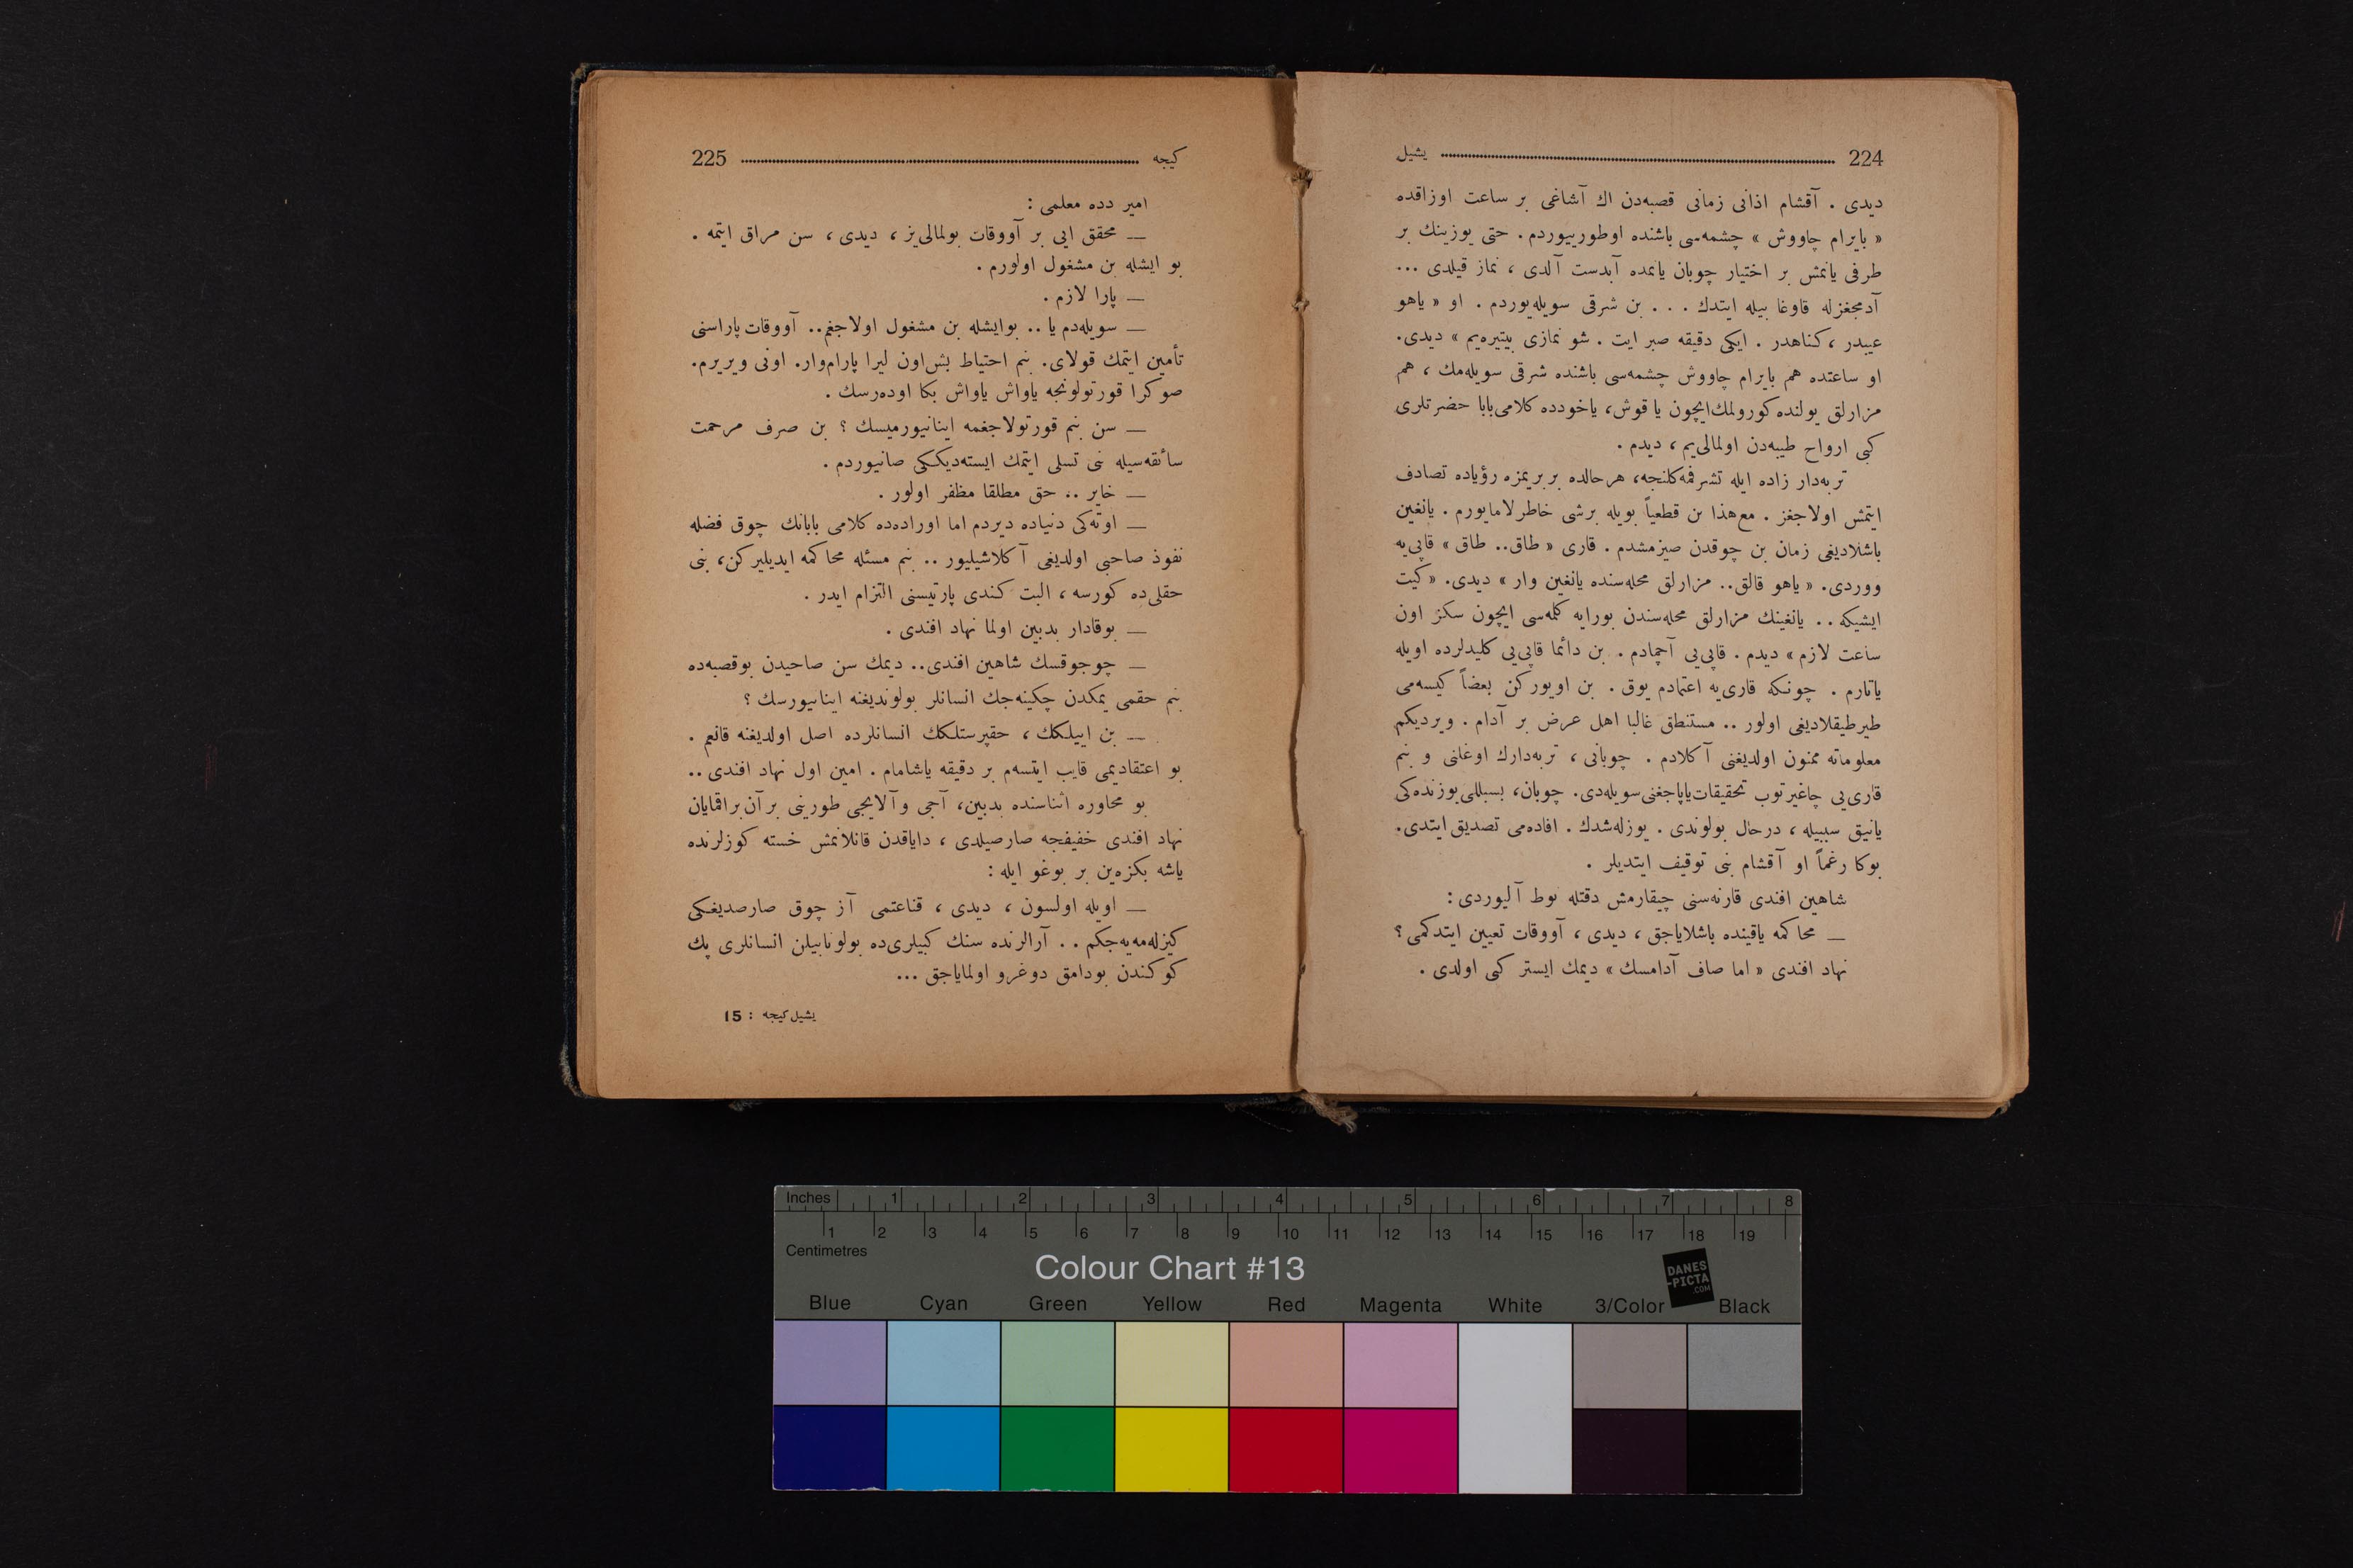 224 يشيل
ديدى . آقشام اذانى زمانى قصبه‌دن اك آشاغى بر ساعت اوزاقده
« بايرام چاووش » چشمه‌سى باشنده اوطورييوردم . حتى يوزينك بر
طرفى يانمش بر اختيار چوبان يانمده آبدست آلدى ، نماز قيلدى ...
آدمجغزله قاوغا بيله ايتدك . . . بن شرقى سويله‌يوردم . او « ياهو
عيبدر ، كناهدر . ايكى دقيقه صبر ايت . شو نمازى بيتيره‌يم » ديدى.
او ساعتده هم بايرام چاووش چشمه‌سى باشنده شرقى سويله‌مك ، هم
مزارلق يولنده كورولمك ايچون يا قوش، ياخود دده كلامى بابا حضرتلرى
كبى ارواح طيبه‌دن اولمالى‌يم ، ديدم .
تربه‌دار زاده ايله تشرفمه كلنجه، هر حالده بربريمزه رؤياده تصادف
ايتمش اولاجغز . مع هذا بن قطعياً بويله برشى خاطرلامايورم . يانغين
باشلاديغى زمان بن چوقدن صيزمشدم . قارى « طاق.. طاق » قاپى‌يه
ووردى. « ياهو قالق.. مزارلق محله‌سنده يانغين وار » ديدى. « كيت
ايشيكه .. يانغينك مزارلق محله‌سندن بورايه كلمه‌سى ايچون سكز اون
ساعت لازم » ديدم . قاپى‌يى آچمادم . بن دائما قاپى‌يى كليدلرده اويله
ياتارم . چونكه قارى‌يه اعتمادم يوق . بن اويوركن بعضاً كيسه‌مى
طيرطيقلاديغى اولور .. مستنطق غالبا اهل عرض بر آدام . ويرديكم
معلوماته ممنون اولديغنى آكلادم . چوبانى ، تربه‌دارك اوغلنى و بنم
قارى‌يى چاغيرتوب تحقيقات ياپاجغنى سويله‌دى. چوبان، بسبللى يوزنده‌كى
يانيق سببيله ، درحال بولوندى . يوزله‌شدك . افاده‌مى تصديق ايتدى.
بوكا رغماً او آقشام بنى توقيف ايتديلر .
شاهين افندى قارنه‌سنى چيقارمش دقتله نوط آليوردى :
— محاكمه ياقينده باشلاياجق ، ديدى ، آووقات تعيين ايتدكمى ؟
نهاد افندى « اما صاف آدامسك » ديمك ايستر كبى اولدى .
كيجه 225
امير دده معلمى :
— محقق ايى بر آووقات بولمالى‌يز ، ديدى ، سن مراق ايتمه .
بو ايشله بن مشغول اولورم .
— پارا لازم .
— سويله‌دم يا .. بو ايشله بن مشغول اولاجغم.. آووقات پاراسنى
تأمين ايتمك قولاى. بنم احتياط بش اون ليرا پارام وار. اونى ويريرم.
صوكرا قورتولونجه ياواش ياواش بكا اوده‌رسك .
— سن بنم قورتولاجغمه اينانيورميسك ؟ بن صرف مرحمت
سائقه‌سيله بنى تسلى ايتمك ايسته‌ديككى صانيوردم .
— خاير .. حق مطلقا مظفر اولور .
— اوته‌كى دنياده ديردم اما اوراده‌ده كلامى بابانك چوق فضله
نفوذ صاحبى اولديغى آكلاشيليور .. بنم مسئله محاكمه ايديليركن، بنى
حقلى‌ده كورسه ، البت كندى پارتيسنى التزام ايدر .
— بوقادار بدبين اولما نهاد افندى .
— چوجوقسك شاهين افندى.. ديمك سن صاحيدن بو قصبه‌ده
بنم حقمى يمكدن چكينه‌جك انسانلر بولونديغنه اينانيورسك ؟
— بن اييلكك ، حقپرستلكك انسانلرده اصل اولديغنه قانعم .
بو اعتقاديمى قايب ايتسه‌م بر دقيقه ياشامام . امين اول نهاد افندى ..
بو محاوره اثناسنده بدبين، آجى و آلايجى طورينى بر آن براقمايان
نهاد افندى خفيفجه صارصيلدى ، داياقدن قانلانمش خسته كوزلرنده
ياشه بكزه‌ين بر بوغو ايله :
— اويله اولسون ، ديدى ، قناعتمى آز چوق صارصديغكى
كيزله‌مه‌يه‌جكم .. آرالرنده سنك كبيلرى‌ده بولونابيلن انسانلرى پك
كوكندن بودامق دوغرو اولماياجق ...
يشيل كيجه : 15
Inches 1 2 3 4 5 6 7 8
1 2 3 4 5 6 7 8 9 10 11 12 13 14 15 16 17 18 19
Centimetres
Colour Chart #13
DANES
-PICTA
.COM
Blue Cyan Green Yellow Red Magenta White 3/Color Black